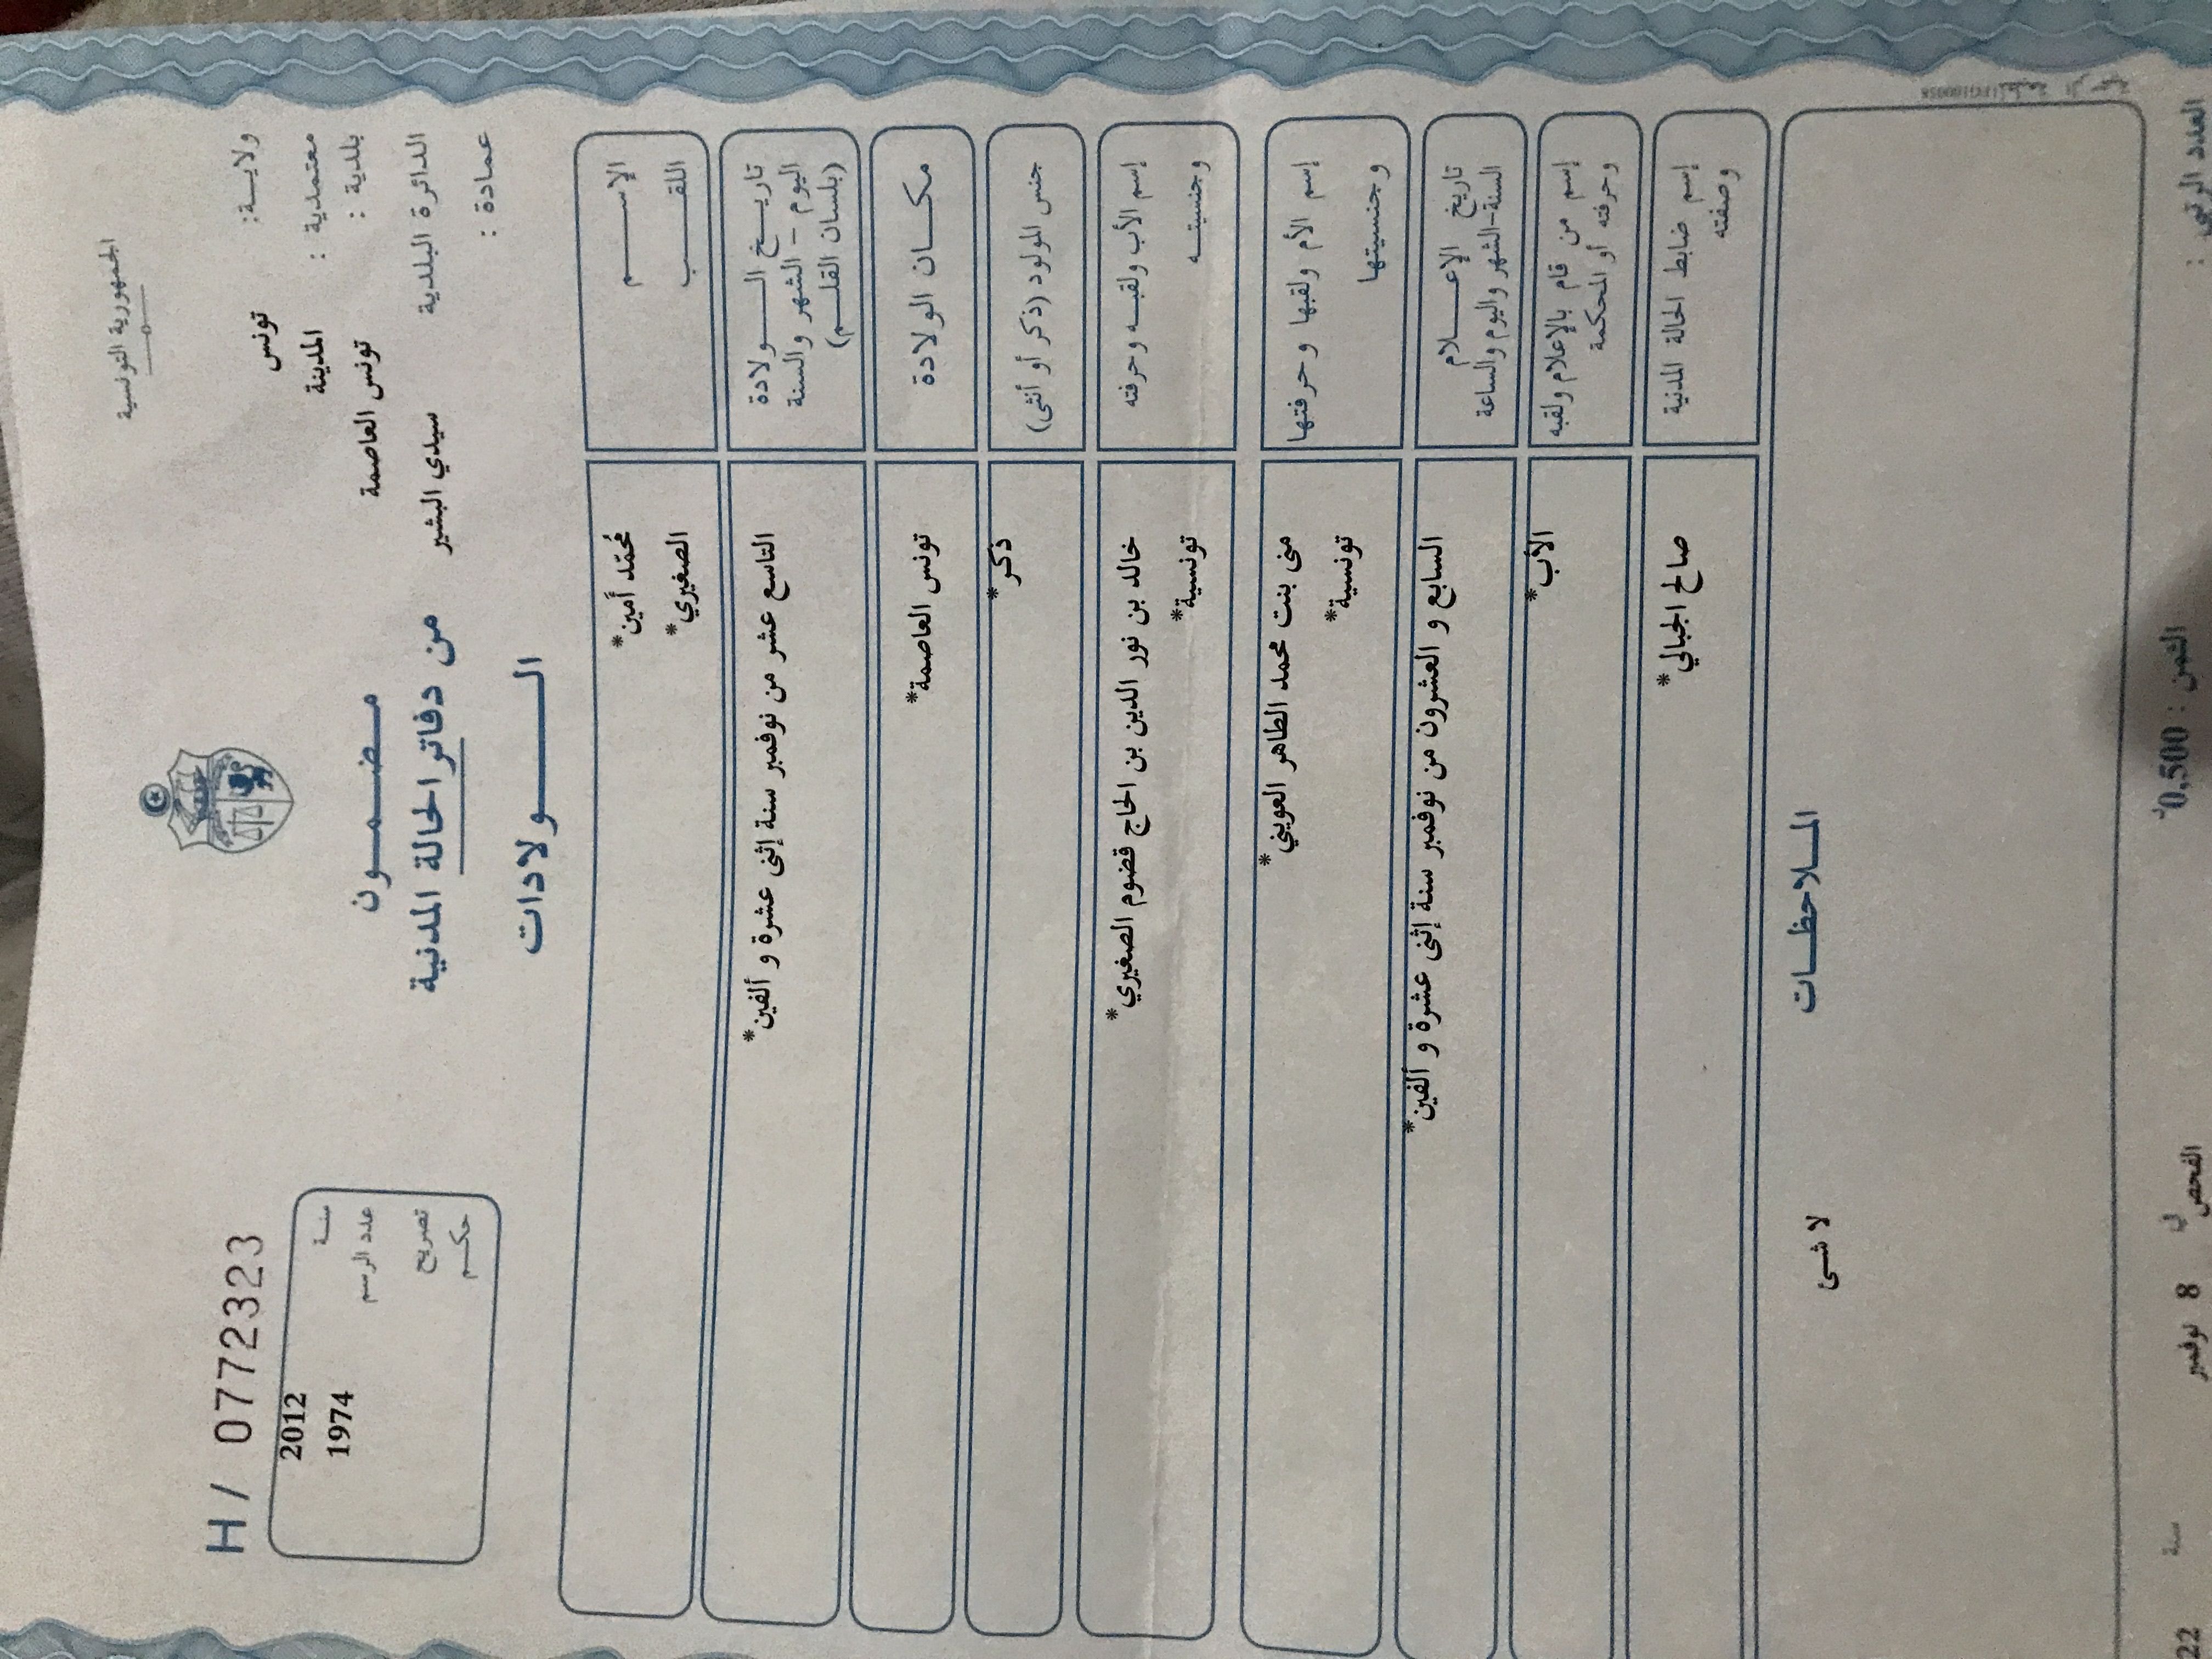 الجمهورية التونسية
ولاية: تونس
معتمدية : المدينة
بلدية : تونس العاصمة
الدائرة البلدية سيدي البشير
عمادة :
مضمون
من دفاتر الحالة المدنية
الولادات
H / 072323
سنة 2012
عدد الرسم 1974
تصريح
حكم
الإسم محُمّد أمين*
اللقب الصغيري*
تاريخ الولادة
اليوم - الشهر والسنة
(بلسان القلم)
التاسع عشر من نوفمبر سنة إثنى عشرة و ألفين*
مكان الولادة تونس العاصمة*
جنس المولود (ذكر أو أنثى) ذكر*
إسم الأب ولقبه وحرفته خالد بن نور الدين بن الحاج قضوم الصغيري*
وجنسيته تونسية*
إسم الأم ولقبها وحرفتها منى بنت محمد الطاهر العويني*
وجنسيتها تونسية*
تاريخ الإعلام
السنة-الشهر واليوم والساعة
السابع و العشرون من نوفمبر سنة إثنى عشرة و ألفين*
إسم من قام بالإعلام ولقبه
وحرفته أو المحكمة
الأب*
إسم ضابط الحالة المدنية
وصفته
صالح الجبالي*
الملاحظات
لا شئ
العدد الرقمي :
الثمن : 0,500
الفحص في 8 نوفمبر سنة 22